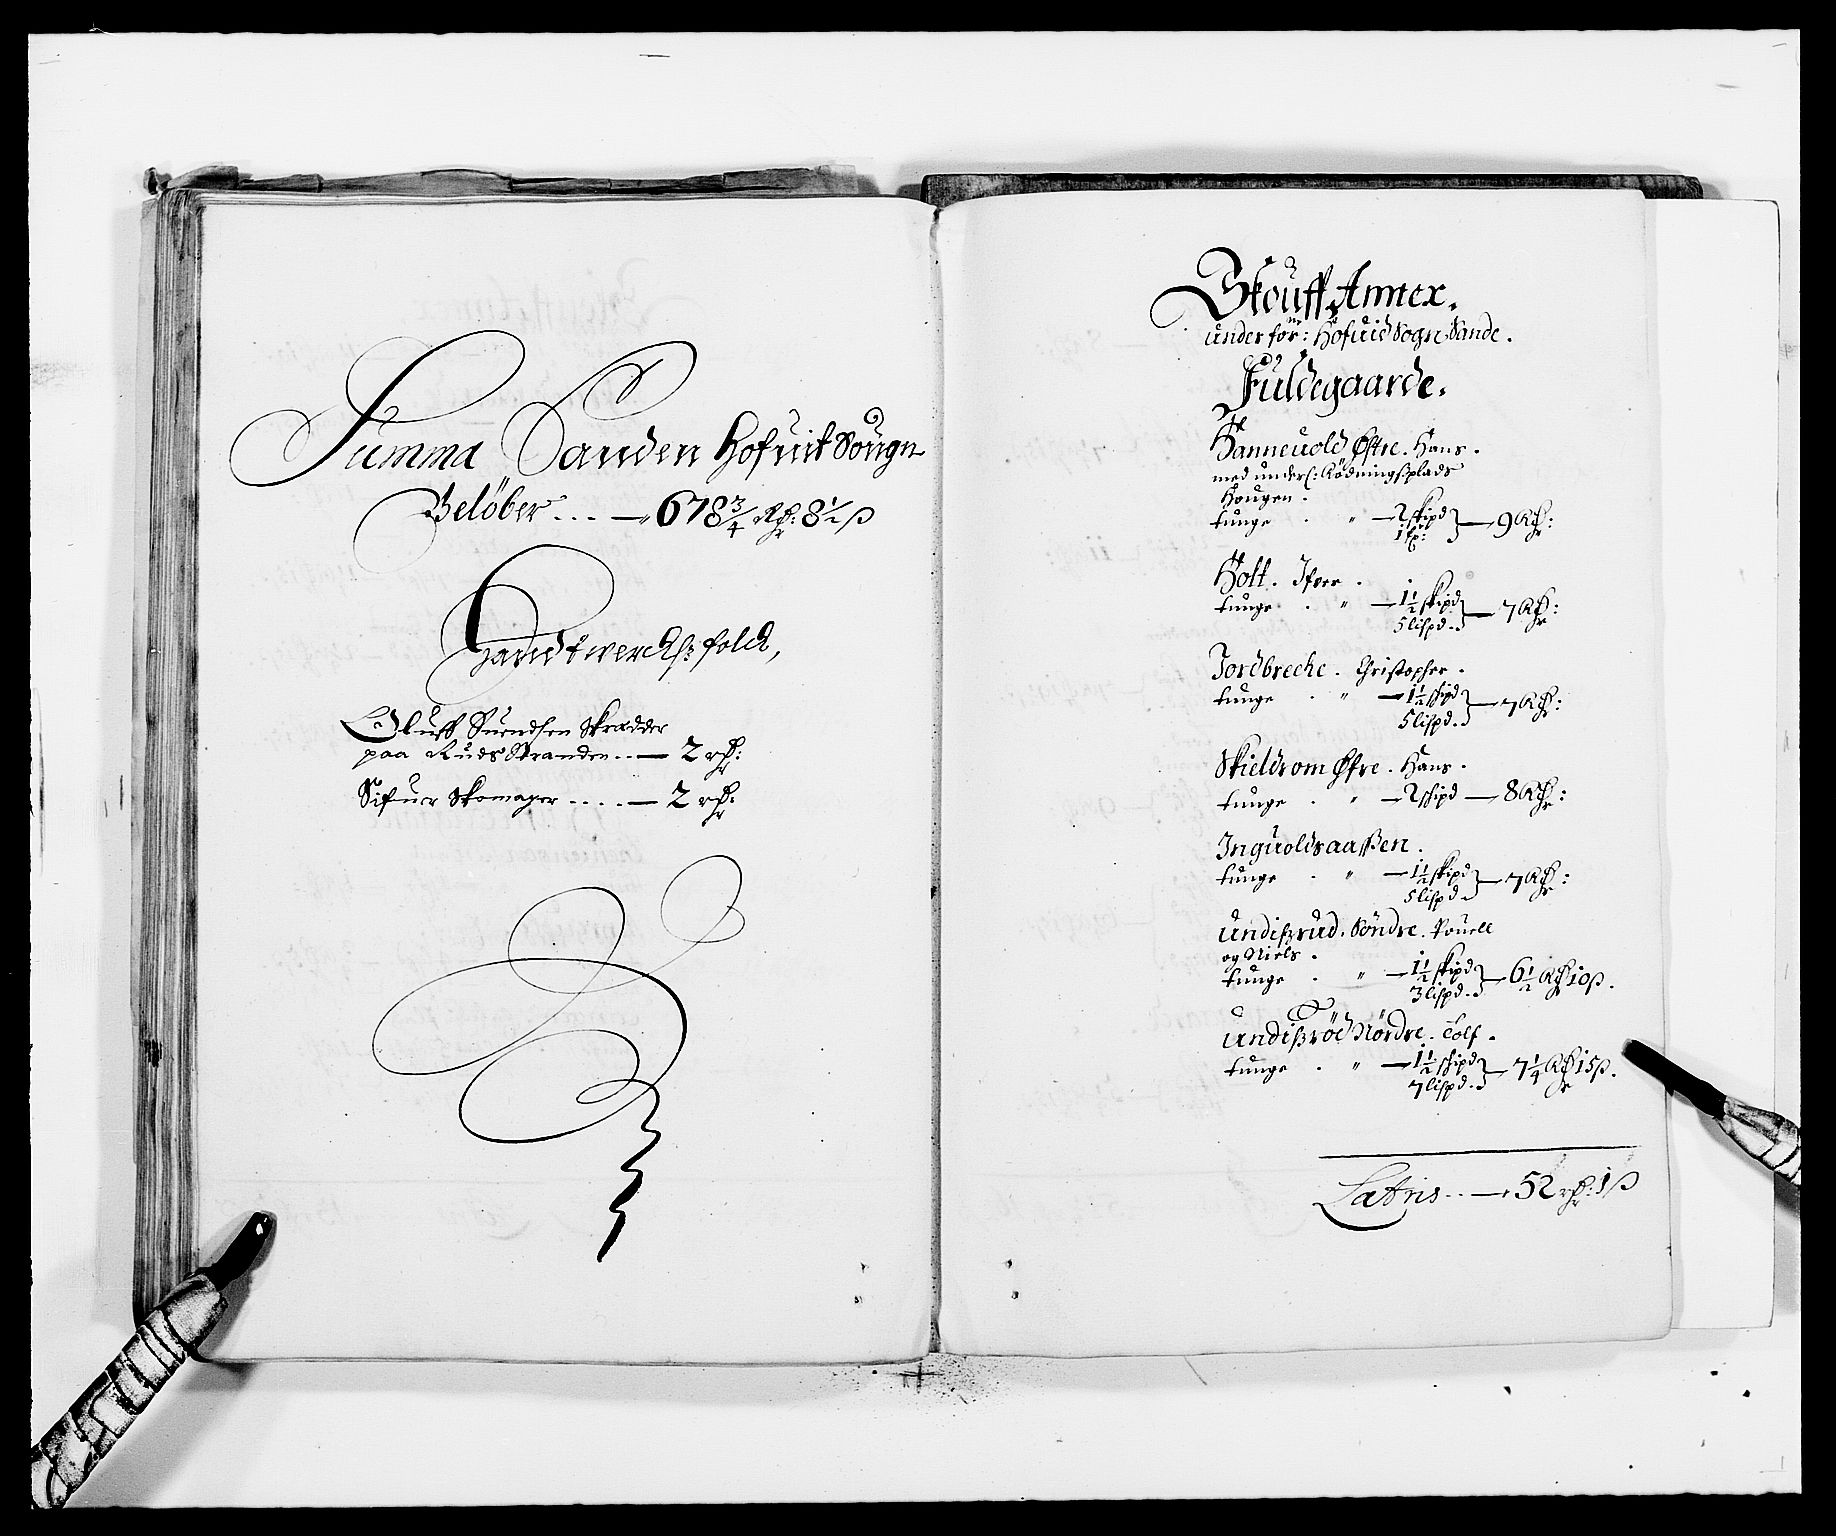 Summa Sanden Hofuit Sougn
Belöber ... — 678 3/4 Rdr: 8 1/2 ß
Handtwercks folck,
Oluff Suendsen Skrædder
paa Ruds Stranden .. — 2 rdr:
Sifuer Skomager .... — 2 rdr:
Skouff Annex.
under for:ne Hofuid Sogn Sande.
Fuldegaarde.
Hanneuold Østre. Hans.
med underl: Rödningsplads
Hougen.
tunge . " — 2 skipd
1 fp: } — 9 Rdr:
Holt. Ifver.
tunge . " — 1 1/2 skipd
5 lispd. } — 7 Rdr:
Jordbreche. Christopher.
tunge . " — 1 1/2 skipd
5 lispd. } — 7 Rdr:
Skieldrom Østre. Hans.
tunge . " — 2 skipd — 8 Rdr:
Inguoldsaassen.
tunge . " — 1 1/2 skipd
5 lispd. } — 7 Rdr:
Undisrud. Söndre. Pouell
og Niels.
tunge . " — 1 1/2 skipd
3 lispd. } — 6 1/2 Rdr 10 ß.
Undisröd Nördre. Tolf.
tunge . " — 1 1/2 skipd
7 lispd. } — 7 1/4 Rdr 15 ß.
Latris .. — 52 rdr: 1 ß